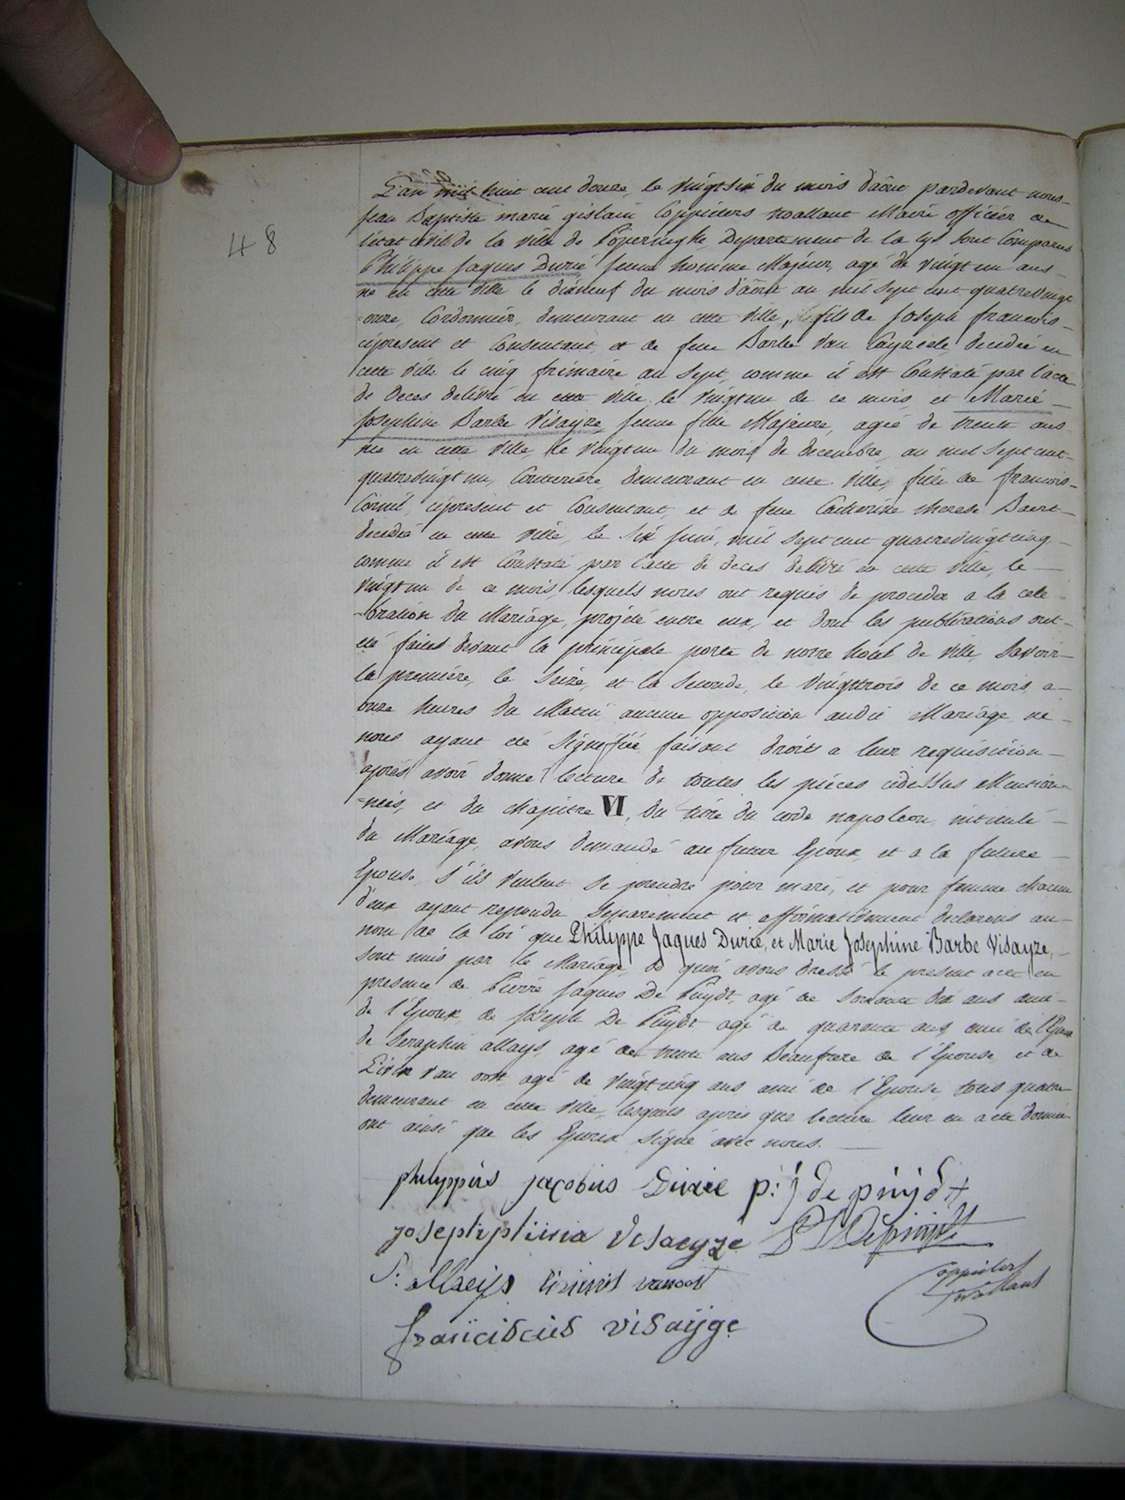 48
L'an mil huit cent douze, le vingtsix du mois d'août pardevant nous
Jean Baptiste marie gislain Coppieters wallant Maire officier de
l'état civil de la ville de Poperinghe Departement de la lys sont Comparus
Philippe Jaques Durié jeune homme Majeur, agé de vingt un ans
né en cette ville le dixneuf du mois d'août an mil sept cent quatrevingt
onze, Cordonnier, demeurant en cette ville, fils de Joseph francois
cipresent et Consentant, et de feue Barbe Van decedée en
cette ville le cinq frimaire an sept, comme il est Constaté par l'acte
de deces delivré en cette ville le vingtun de ce mois, et Marie
Josephine Barbe Visayze, jeune fille Majeure, agée de trente ans
née en cette ville, le vingtun du mois de decembre, an mil sept cent
quatrevingt un, Couturière, demeurant en cette ville, fille de francois
Cornil, cipresent et Consentant, et de feue Catherine therese Baert
decedée en cette ville, le six juin, mil sept cent quatrevingtcinq
comme il est Constaté par l'acte de deces delivré en cette ville, le
vingtun de ce mois, lesquels nous ont requis de proceder a la cele-
-bration du Mariage projeté entre eux, et dont les publications ont
été faites devant la principale porte de notre hotel de ville, Savoir
la première, le seize, et la seconde, le vingttrois de ce mois, a
onze heures du Matin aucune opposition audit Mariage ne
nous ayant été signifiée faisant droit a leur requisition
après avoir donné lecture de toutes les pièces cidessus Mention-
-nées, et du chapitre VI, du titre du code napoleon, intitulé
du Mariage, avons demandé au futur Epoux et a la future
Epouse, s'ils veulent se prendre pour mari, et pour femme chacun
d'eux ayant repondu separement et affirmativement declarons au
nom de la loi que Philippe Jaques Durié, et Marie Josephine Barbe Visayze,
sont unis par le Mariage, de quoi avons dressé le present acte en
presence de Pierre Jaques De Puydt, agé de soixante dix ans ami
de l'Epoux, de Joseph De Puydt agé de quarante ans, ami de l'Epoux
de Seraphin allays, agé de trente ans Beaufrere de l'Epouse et de
van oost agé de vingtcinq ans ami de l'Epouse tous quatre
demeurant en cette ville, lesquels après que lecture leur en a été donnée
ont ainsi que les Epoux signé avec nous.
philippus jacobus Durie p: j de puijdt
josephphina Visaeyze Depuijdt
S: allaeijs vanoost
Coppieters
wallant
franciscus visaijge